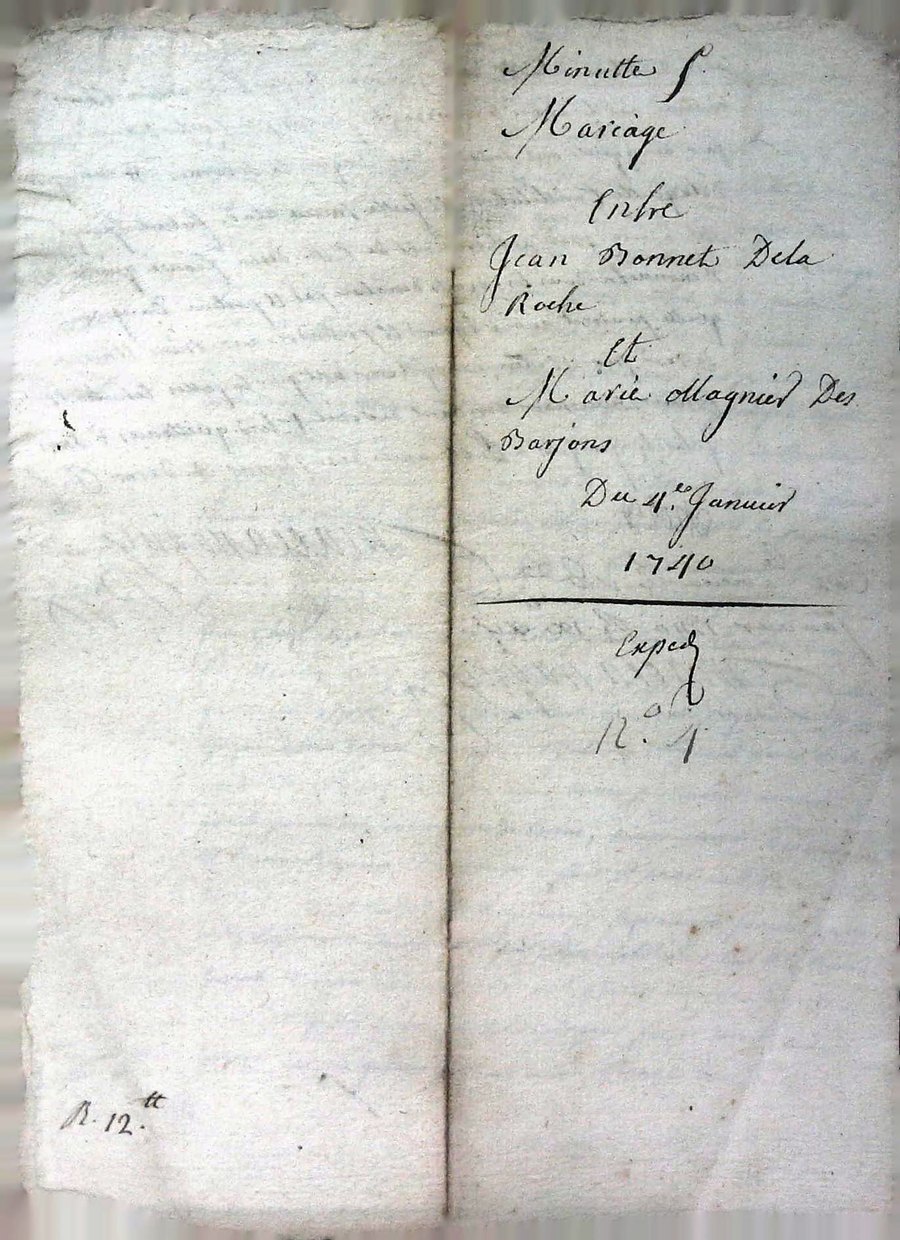 Minutte S.
Mariage
Entre
Jean Bonnet Dela
Roche
Et
Marie Magnier Des
Barjons
Du 4.e Januier
1740
Exped
N.o 4
R. 12.tt